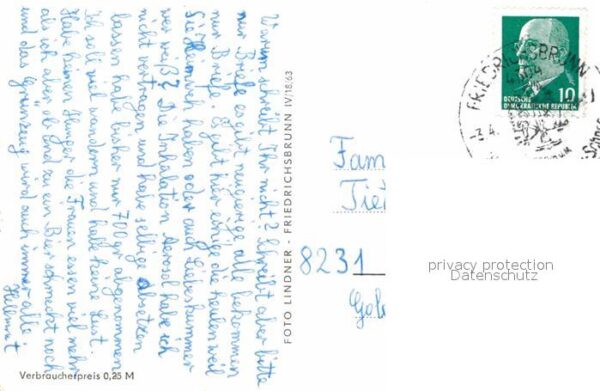 Warum schreibt Ihr nicht? Schreibt aber bitte
nur Briefe es ist neugierige alle bekommen
nur Briefe. Es gibt hier einige die heulen weil
Sie Heimweh haben oder auch Liebeskummer
wer weiß? Die Inhalation Aerosol habe ich
nicht vertragen und habe selbige absetzen
lassen habe bisher nur 700gr abgenommen
Ich soll viel wandern und habe keine Lust.
Habe keinen Hunger die Frauen essen viel mehr
als ich aber ab und zu ein Bier schmeckt noch
und das Grünzeug wird auch immer alle
Hellmut
FOTO LINDNER - FRIEDRICHSBRUNN IV/18/63
Verbraucherpreis 0,25 M
FRIEDRICHSBRUNN
4304
DEUTSCHE
DEMOKRATISCHE REPUBLIK
10
Fam
8231
privacy protection
Datenschutz